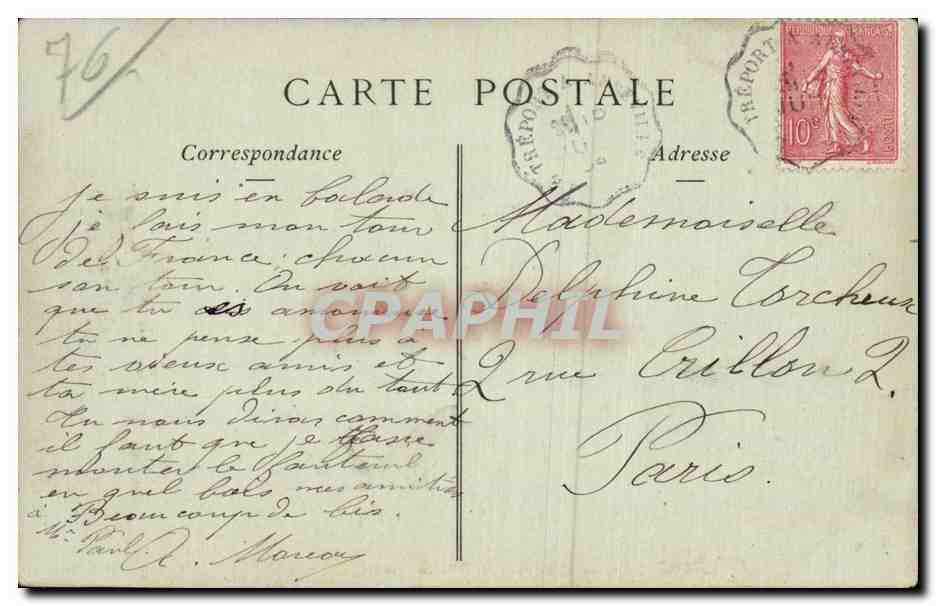 76
CARTE POSTALE
Correspondance
Adresse
TRÉPORT A
TRÉPORT A
REPUBLIQUE FRANÇAISE
10c
POSTES
je suis en balade
je fais mon tour
de France. chacun
son tour. On voit
que tu es amoureuse
tu ne pense plus à
tes vieux amis et
ta mère plus du tout
Tu nous diras comment
il faut que je fasse
monter le fauteuil
en quel bois mes amitiés
à Mr Paul
Beaucoup de bis.
A.
Mademoiselle
Delphine Torcheux
2 rue Crillon 2.
Paris.
CPAPHIL